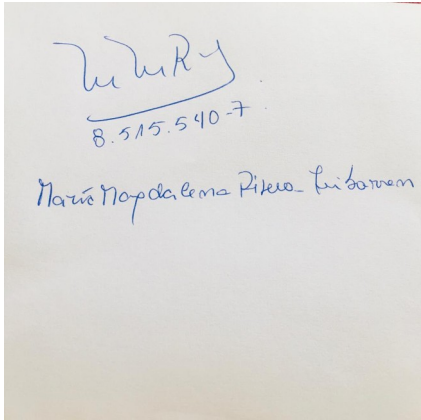 MMRY
8.515.540-7
María Magdalena Rivera Iribarren